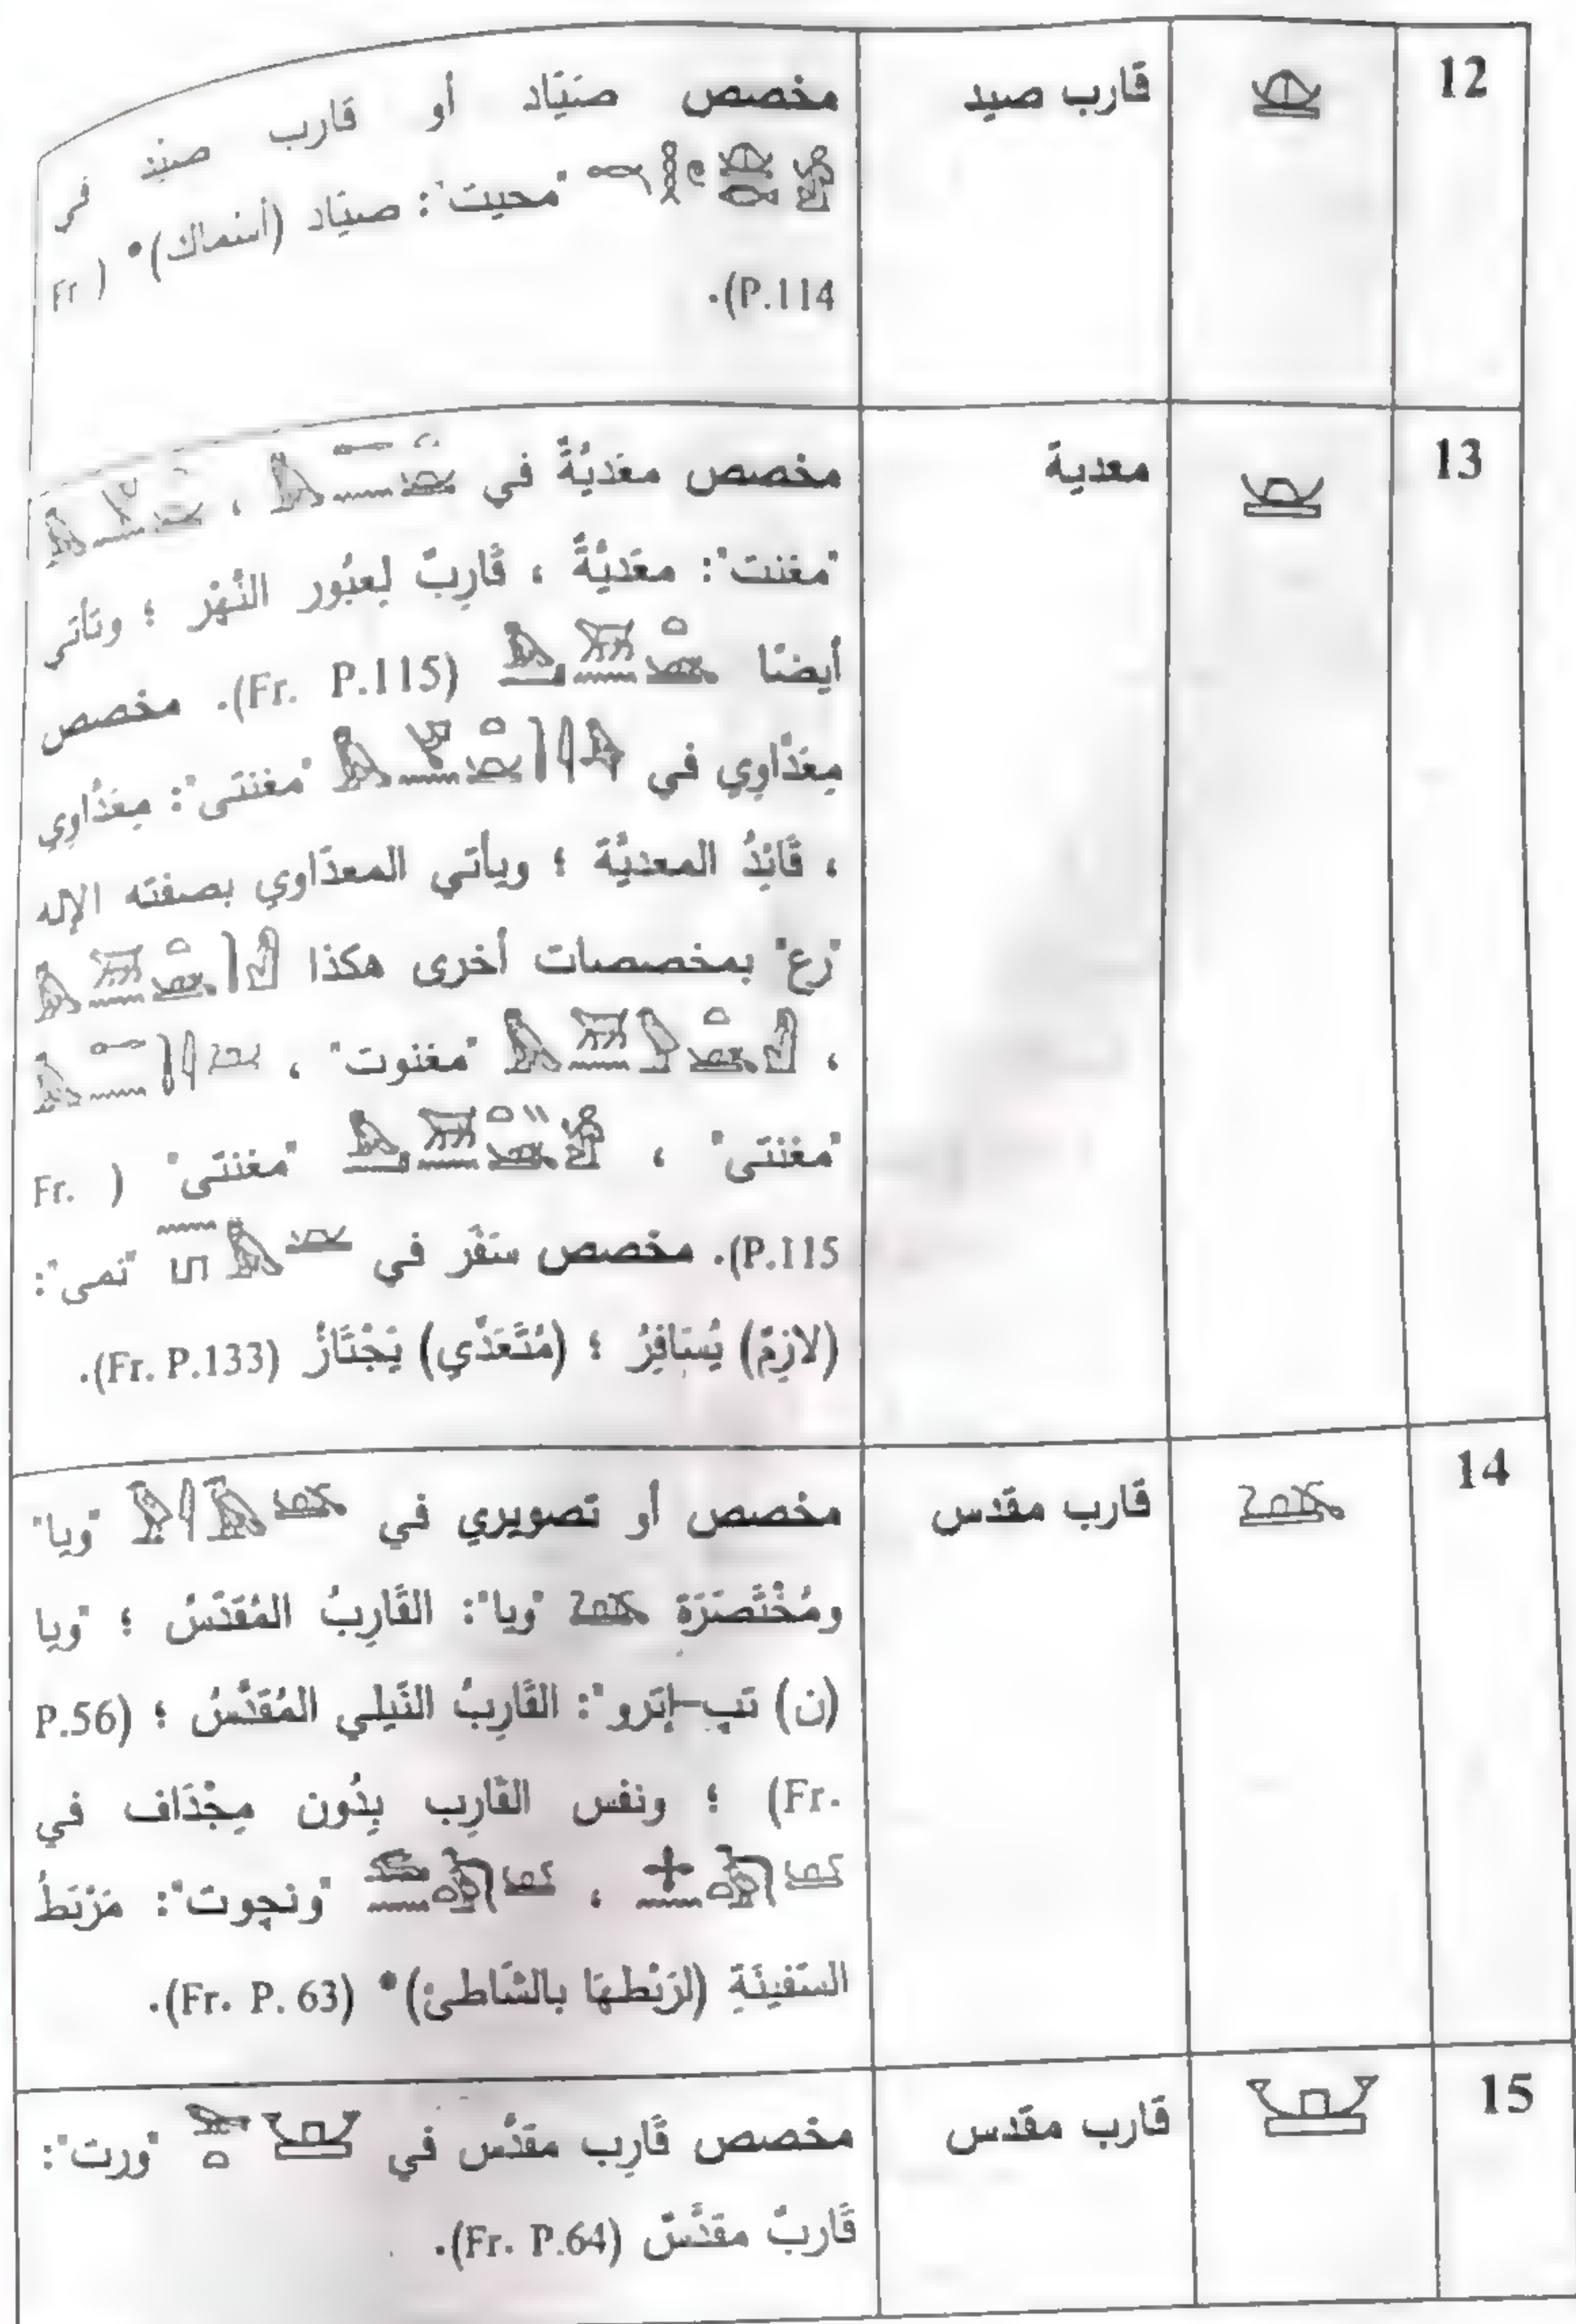 12
قارب صيد
مخصص صَيَّاد أو قارب صَيْد في
"محيت": صيَّاد (أسْماك)* (Fr
P.114).
13
معدية
مخصص معَديَّةً في ،
"مغنت": معَديَّةٌ ، قَارِبٌ لِعبُور النَّهْر ؛ وتَأتي
أيضًا (Fr. P.115). مخصص
مِعَدَّاوِي في "مغنتى": مِعَدَّاوِي
، قَائِدُ المعديَّة ؛ ويأتي المعدَّاوي بصفته الإله
"رَع" بمخصصات أخرى هكذا
، "مغنوت" ،
"مغنتى" ، "مغنتى" (Fr.
P.115). مخصص سَفَر في "نمى":
(لازِمٌ) يُسَافِرُ ؛ (مُتَعَدِّي) يَجْتَازُ (Fr. P.133).
14
قارب مقدس
مخصص أو تصويري في "ويا"
ومُخْتَصَرَة "ويا": القَارِبُ المُقَدَّسُ ؛ "ويا
(ن) تپ-إترو": القَارِبُ النَّيلي المُقَدَّسُ ؛ (P.56
Fr.) ؛ ونفس القَارِب بِدُون مِجْدَاف في
، "ونچوت": مَرْبَطُ
السَفينَةِ (لرَبْطهَا بالشَاطئ)* (Fr. P. 63).
15
قارب مقدس
مخصص قَارِب مقدَّس في "ورت":
قَاربٌ مقدَّسٌ (Fr. P.64).